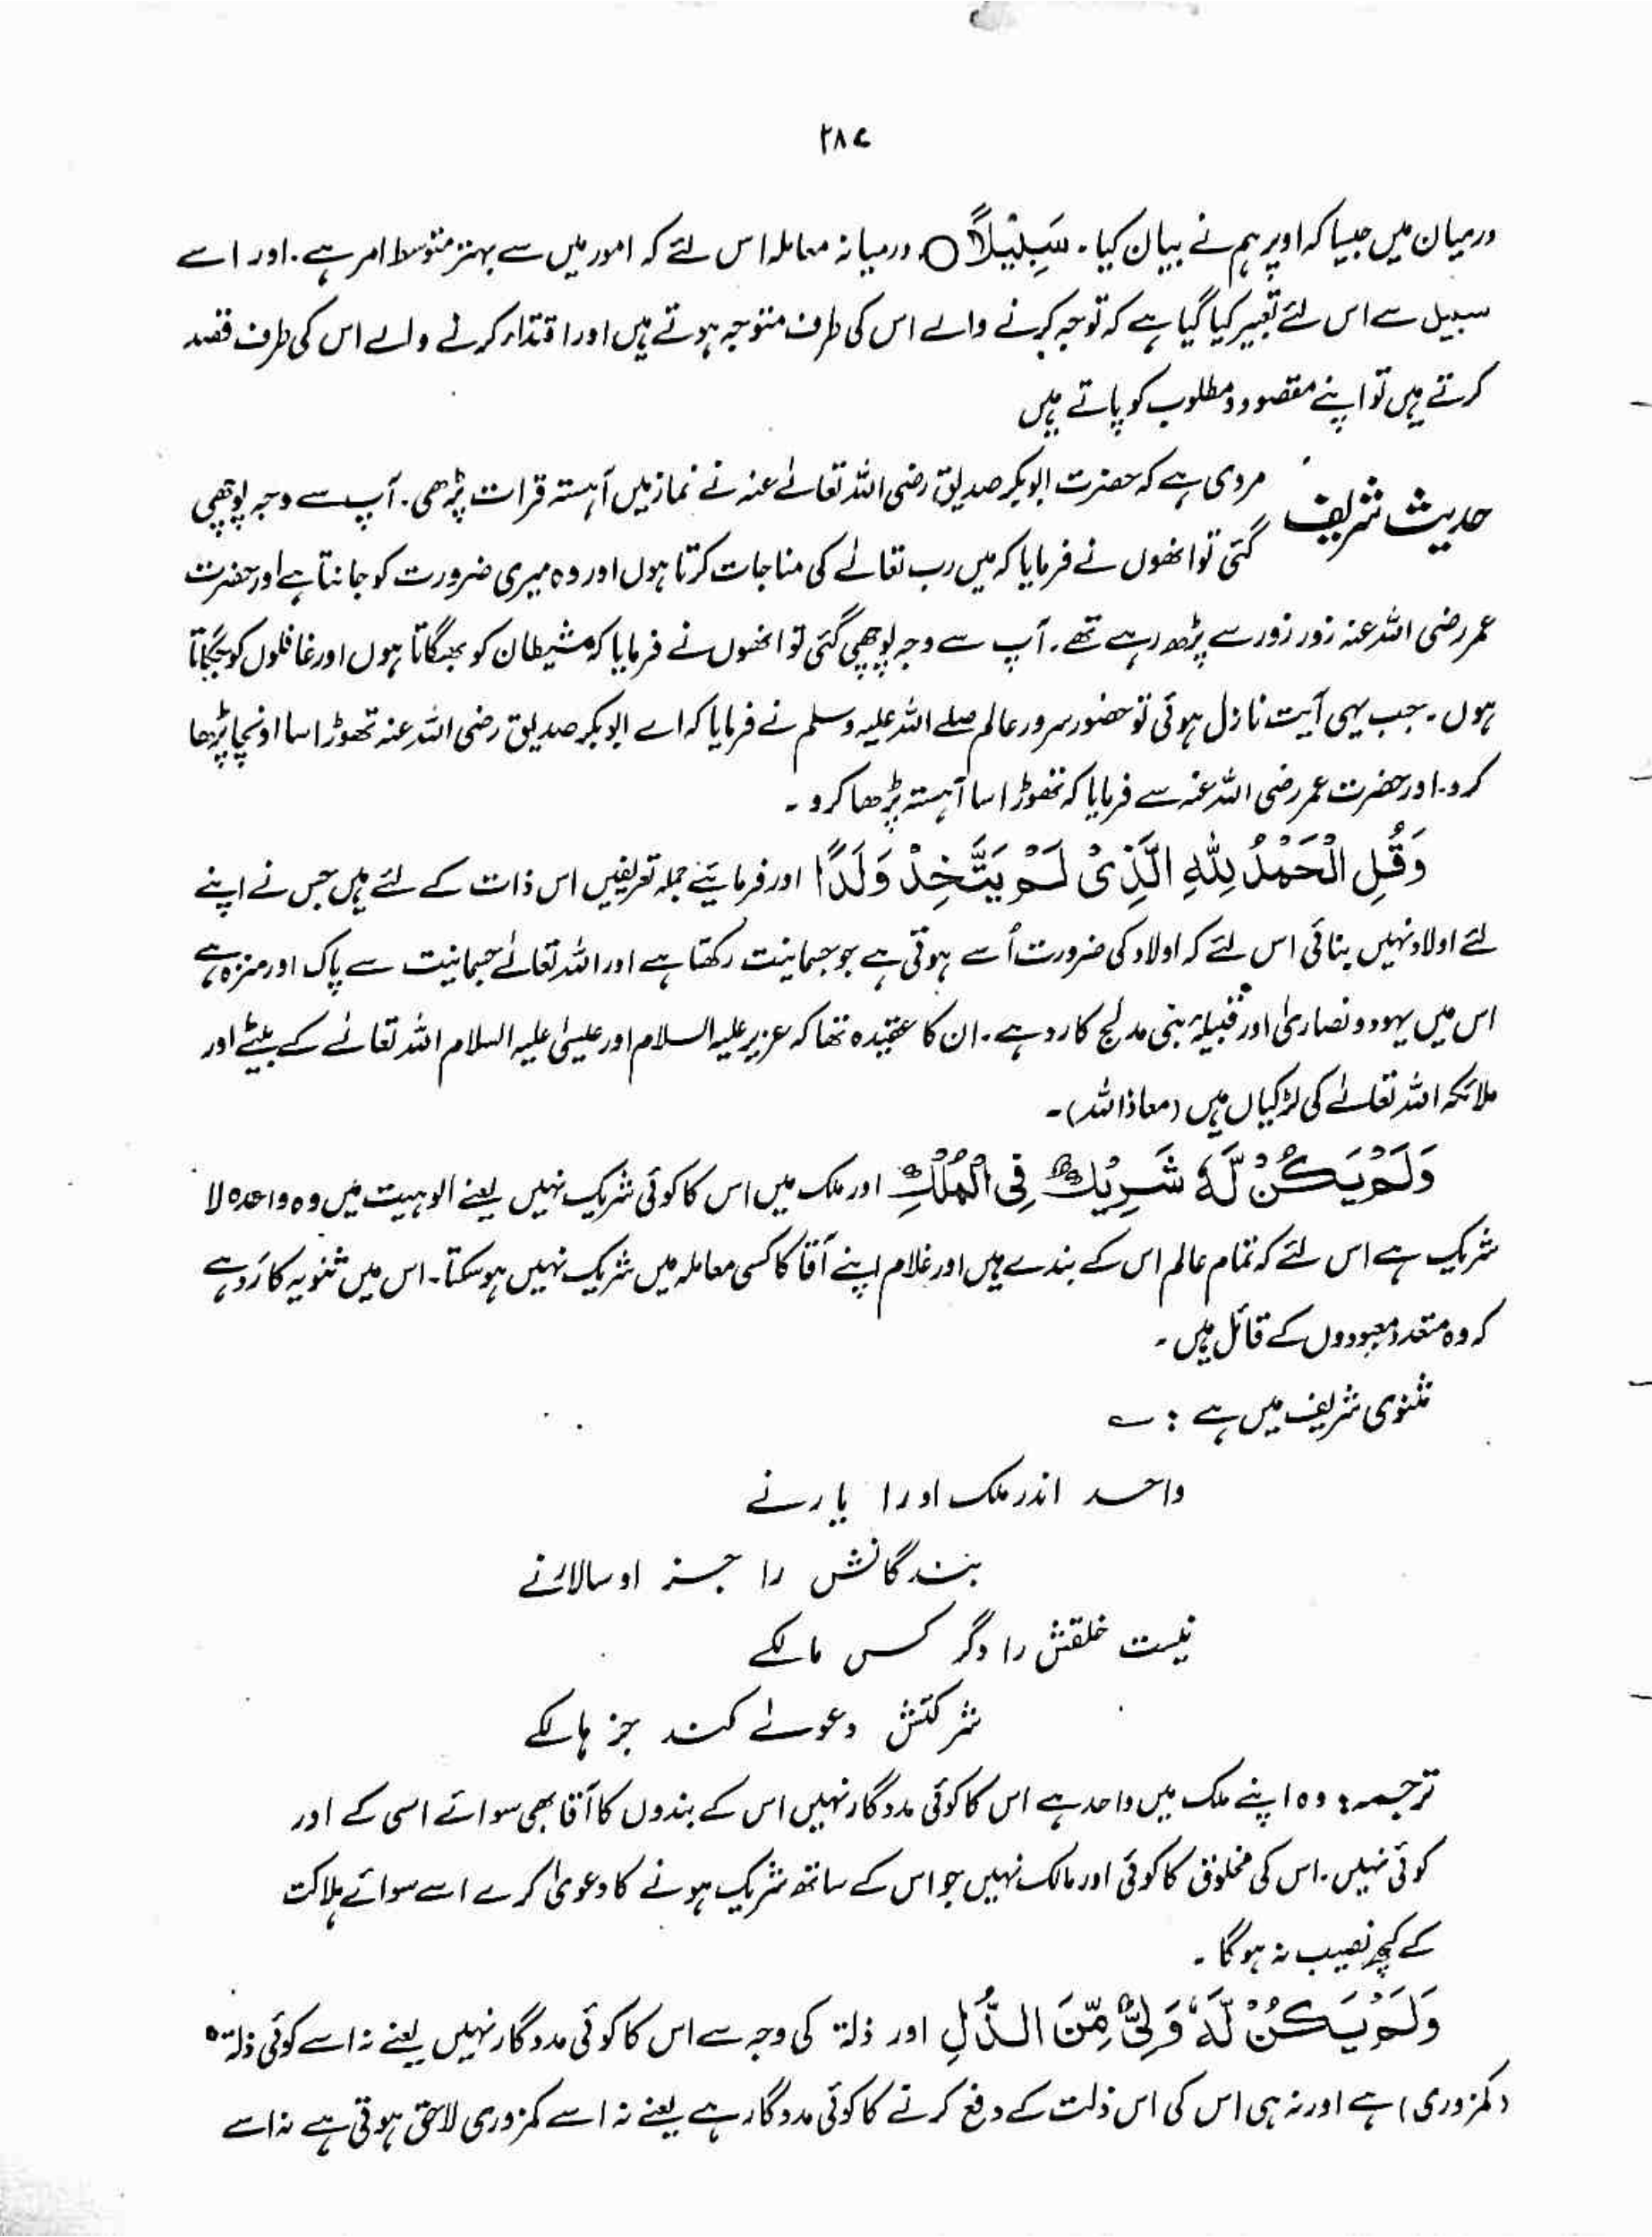 ۲۸۷
درمیان میں جیسا کہ اوپر ہم نے بیان کیا۔ سَبِیْلًا ○ درمیانہ معاملہ اس لئے کہ امور میں سے بہتر متوسط امر ہے۔ اور اسے
سبیل سے اس لئے تعبیر کیا گیا ہے کہ توجہ کرنے والے اس کی طرف متوجہ ہوتے ہیں اور اقتداء کرنے والے اس کی طرف قصد
کرتے ہیں تو اپنے مقصود و مطلوب کو پاتے ہیں
حدیث شریف مروی ہے کہ حضرت ابوبکر صدیق رضی اللہ تعالےٰ عنہ نے نماز میں آہستہ قرات پڑھی۔ آپ سے وجہ پوچھی
گئی تو انھوں نے فرمایا کہ میں رب تعالےٰ کی مناجات کرتا ہوں اور وہ میری ضرورت کو جانتا ہے اور حضرت
عمر رضی اللہ عنہ زور زور سے پڑھ رہے تھے۔ آپ سے وجہ پوچھی گئی تو انھوں نے فرمایا کہ شیطان کو بھگاتا ہوں اور غافلوں کو جگاتا
ہوں۔ جب یہی آیت نازل ہوئی تو حضور سرور عالم صلے اللہ علیہ وسلم نے فرمایا کہ اے ابوبکر صدیق رضی اللہ عنہ تھوڑا سا اونچا پڑھا
کرو۔ اور حضرت عمر رضی اللہ عنہ سے فرمایا کہ تھوڑا سا آہستہ پڑھا کرو۔
وَقُلِ الْحَمْدُ لِلّٰهِ الَّذِیْ لَمْ یَتَّخِذْ وَلَدًا اور فرمایئے جملہ تعریفیں اس ذات کے لئے ہیں جس نے اپنے
لئے اولاد نہیں بنائی اس لئے کہ اولاد کی ضرورت اُسے ہوتی ہے جو جسمانیت رکھتا ہے اور اللہ تعالےٰ جسمانیت سے پاک اور منزہ ہے
اس میں یہود و نصاریٰ اور قبیلۂ بنی مدلج کا رد ہے۔ ان کا عقیدہ تھا کہ عزیر علیہ السلام اور عیسیٰ علیہ السلام اللہ تعالےٰ کے بیٹے اور
ملائکہ اللہ تعالےٰ کی لڑکیاں ہیں (معاذ اللہ)۔
وَلَمْ یَکُنْ لَّهٗ شَرِیْكٌ فِی الْمُلْكِ اور ملک میں اس کا کوئی شریک نہیں یعنے الوہیت میں وہ واحدہ لا
شریک ہے اس لئے کہ تمام عالم اس کے بندے ہیں اور غلام اپنے آقا کا کسی معاملہ میں شریک نہیں ہو سکتا۔ اس میں ثنویہ کا رَد ہے
کہ وہ متعدد معبودوں کے قائل ہیں۔
مثنوی شریف میں ہے : ؎
واحد اندر ملک اورا یار نے
بندگانش را جز او سالار نے
نیست خلقش را دگر کس مالکے
شرکتش دعوےٰ کند جز ہالکے
ترجمہ: وہ اپنے ملک میں واحد ہے اس کا کوئی مددگار نہیں اس کے بندوں کا آقا بھی سوائے اسی کے اور
کوئی نہیں۔ اس کی مخلوق کا کوئی اور مالک نہیں جو اس کے ساتھ شریک ہونے کا دعویٰ کرے اسے سوائے ہلاکت
کے کچھ نصیب نہ ہوگا۔
وَلَمْ یَکُنْ لَّهٗ وَلِیٌّ مِّنَ الذُّلِ اور ذلۃ کی وجہ سے اس کا کوئی مددگار نہیں یعنے نہ اسے کوئی ذلۃ
(کمزوری) ہے اور نہ ہی اس کی اس ذلت کے دفع کرنے کا کوئی مددگار ہے یعنے نہ اسے کمزوری لاحق ہوتی ہے نہ اسے